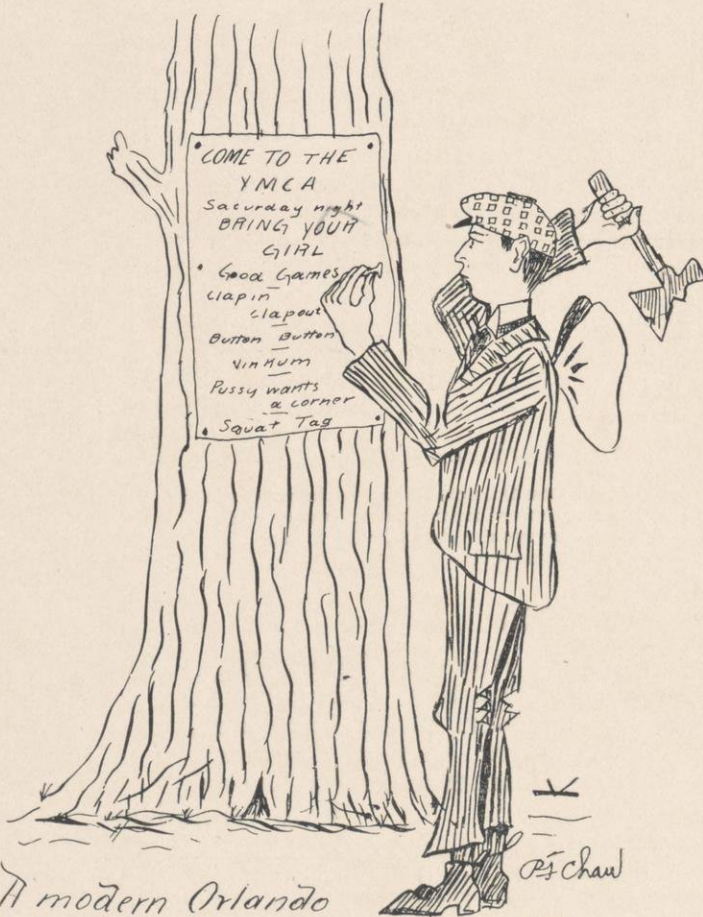 COME TO THE
YMCA
Saturday night
BRING YOUR
GIRL
Good Games
Clap in
Clapout
Button Button
Vin Kum
Pussy wants
a corner
Squat Tag
K
A modern Orlando